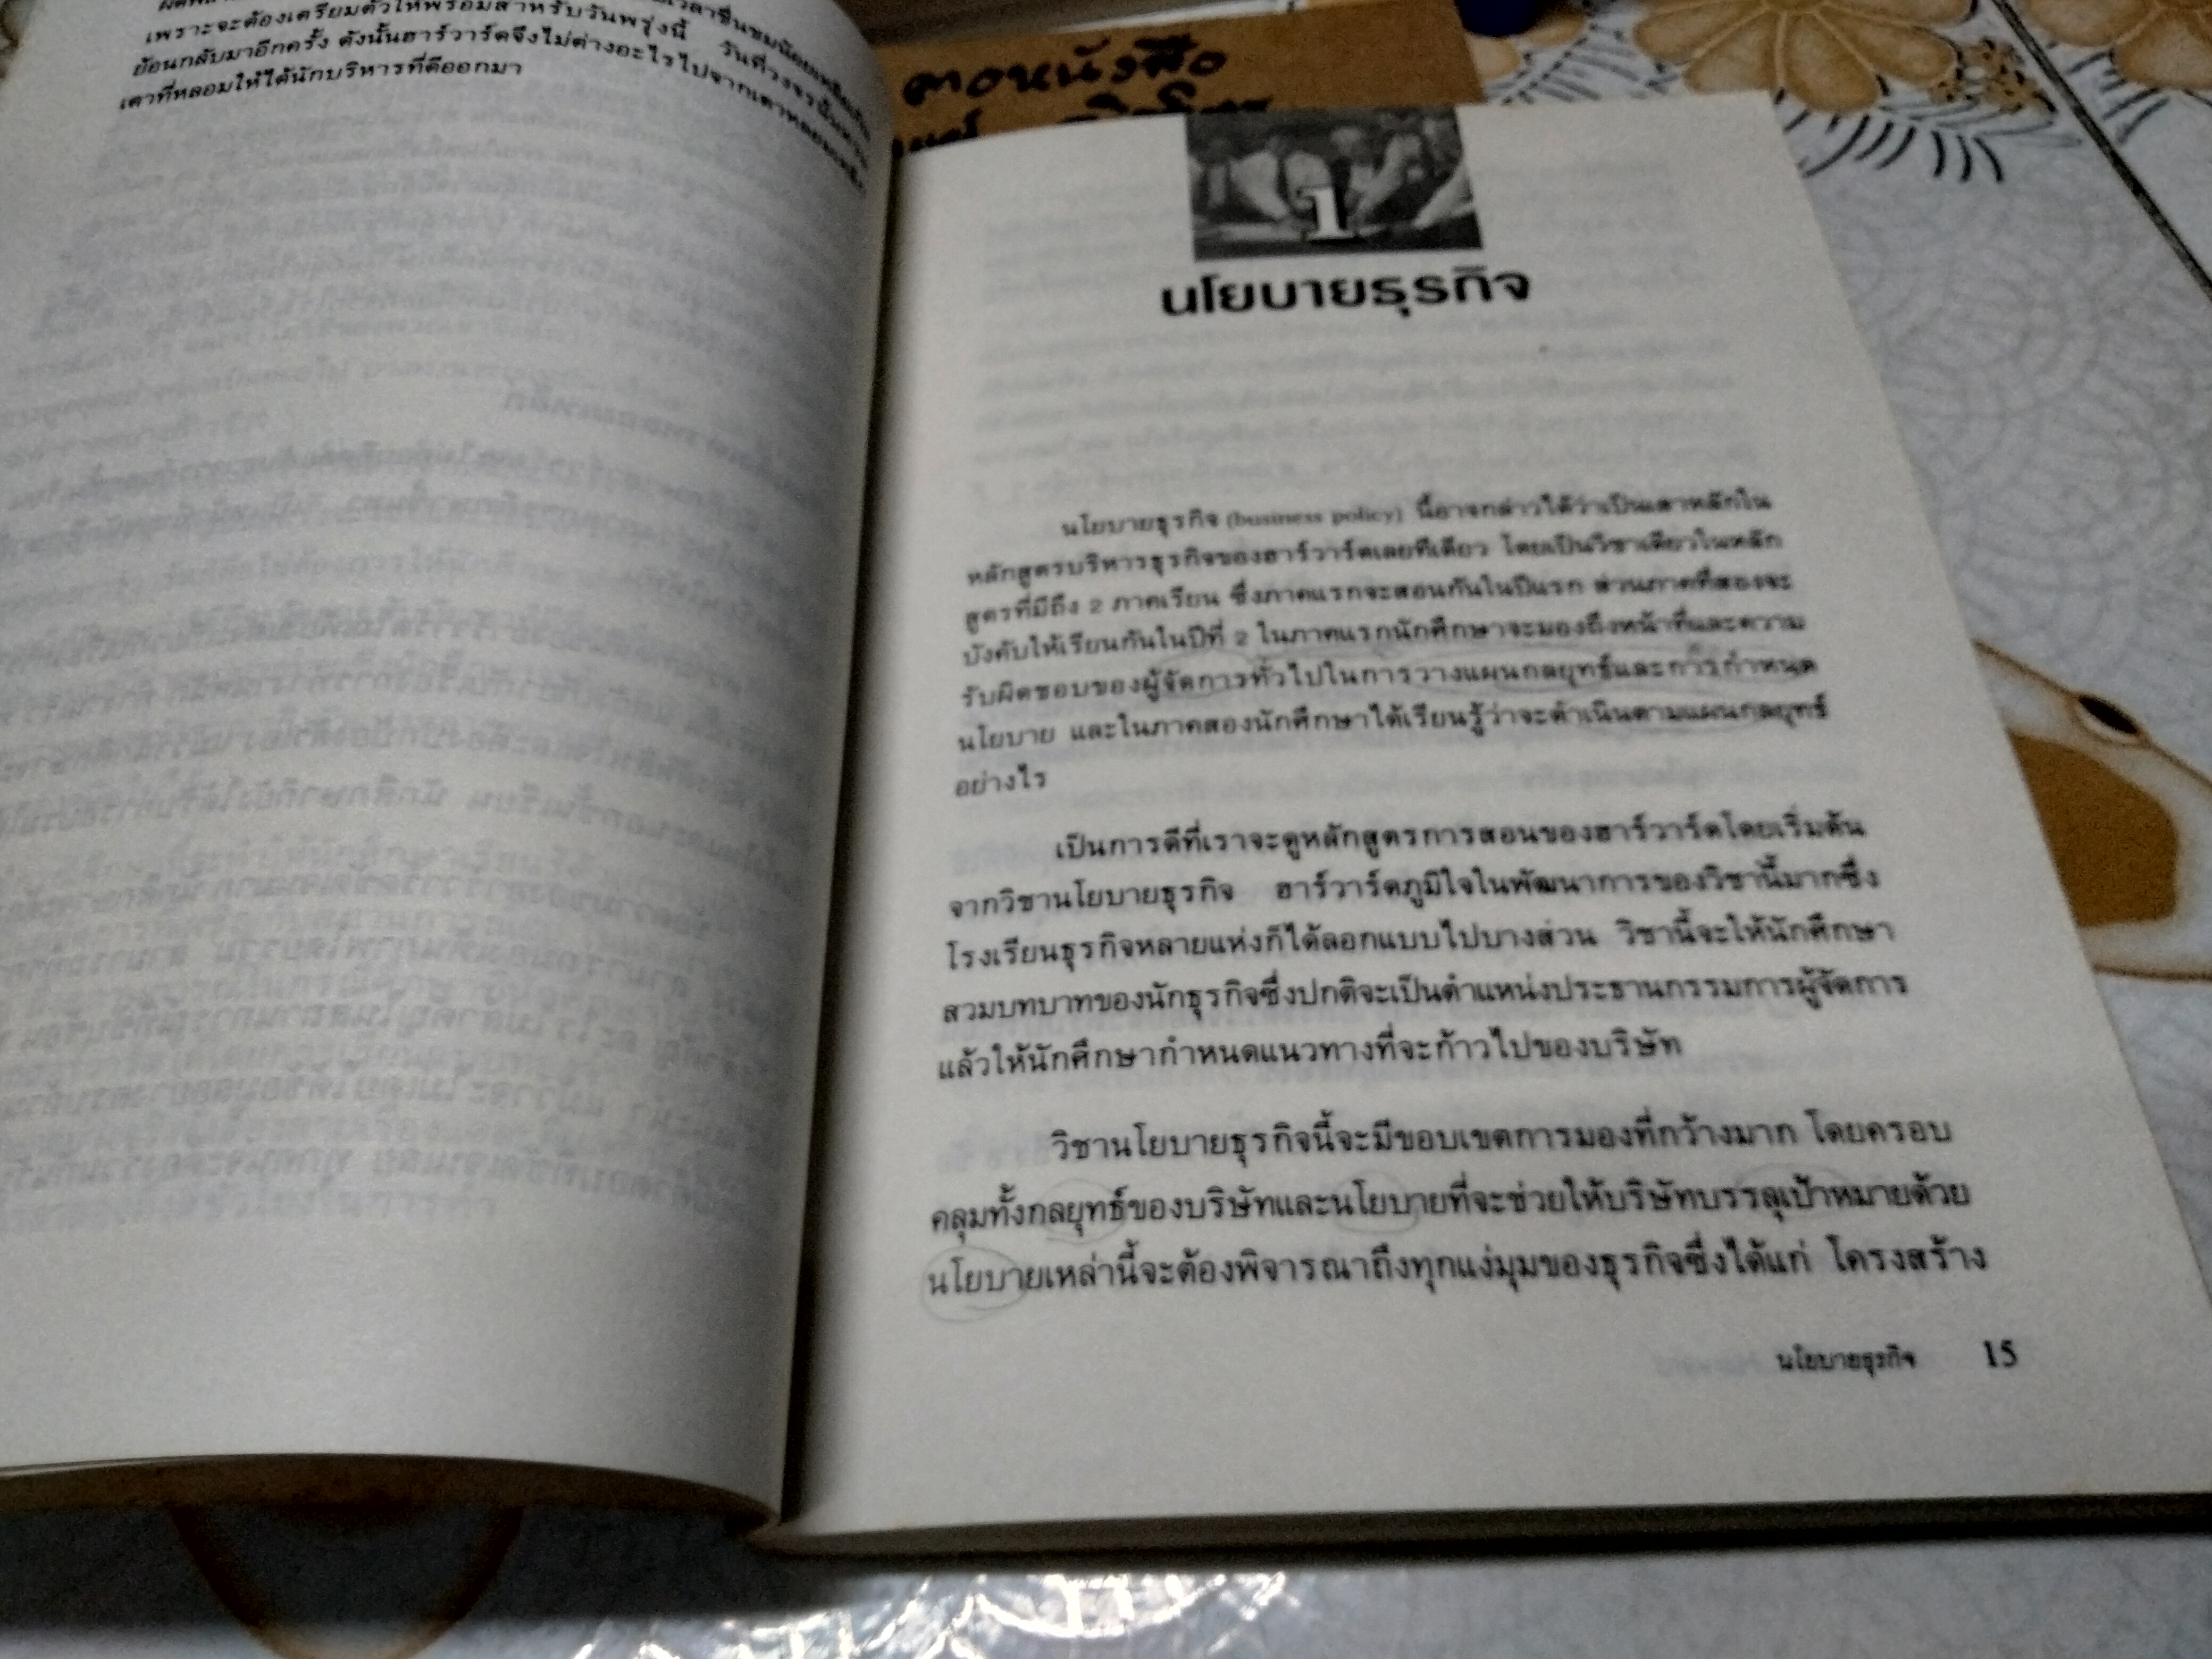 เพราะจะต้องเตรียมตัวให้พร้อมสำหรับวันพรุ่งนี้ วันที่วงจรนั้นหวน
ย้อนกลับมาอีกครั้ง ดังนั้นฮาร์วาร์ดจึงไม่ต่างอะไรไปจากเตาหลอม
เตาที่หลอมให้ได้นักบริหารที่ดีออกมา
ลาดหนังสือ
1
นโยบายธุรกิจ
นโยบายธุรกิจ (business policy) นี้อาจกล่าวได้ว่าเป็นเสาหลักใน
หลักสูตรบริหารธุรกิจของฮาร์วาร์ดเลยทีเดียว โดยเป็นวิชาเดียวในหลัก
สูตรที่มีถึง 2 ภาคเรียน ซึ่งภาคแรกจะสอนกันในปีแรก ส่วนภาคที่สองจะ
บังคับให้เรียนกันในปีที่ 2 ในภาคแรกนักศึกษาจะมองถึงหน้าที่และความ
รับผิดชอบของผู้จัดการทั่วไปในการวางแผนกลยุทธ์และการกำหนด
นโยบาย และในภาคสองนักศึกษาได้เรียนรู้ว่าจะดำเนินตามแผนกลยุทธ์
อย่างไร
เป็นการดีที่เราจะดูหลักสูตรการสอนของฮาร์วาร์ดโดยเริ่มต้น
จากวิชานโยบายธุรกิจ ฮาร์วาร์ดภูมิใจในพัฒนาการของวิชานี้มากซึ่ง
โรงเรียนธุรกิจหลายแห่งก็ได้ลอกแบบไปบางส่วน วิชานี้จะให้นักศึกษา
สวมบทบาทของนักธุรกิจซึ่งปกติจะเป็นตำแหน่งประธานกรรมการผู้จัดการ
แล้วให้นักศึกษากำหนดแนวทางที่จะก้าวไปของบริษัท
วิชานโยบายธุรกิจนี้จะมีขอบเขตการมองที่กว้างมาก โดยครอบ
คลุมทั้งกลยุทธ์ของบริษัทและนโยบายที่จะช่วยให้บริษัทบรรลุเป้าหมายด้วย
นโยบายเหล่านี้จะต้องพิจารณาถึงทุกแง่มุมของธุรกิจซึ่งได้แก่ โครงสร้าง
นโยบายธุรกิจ 15